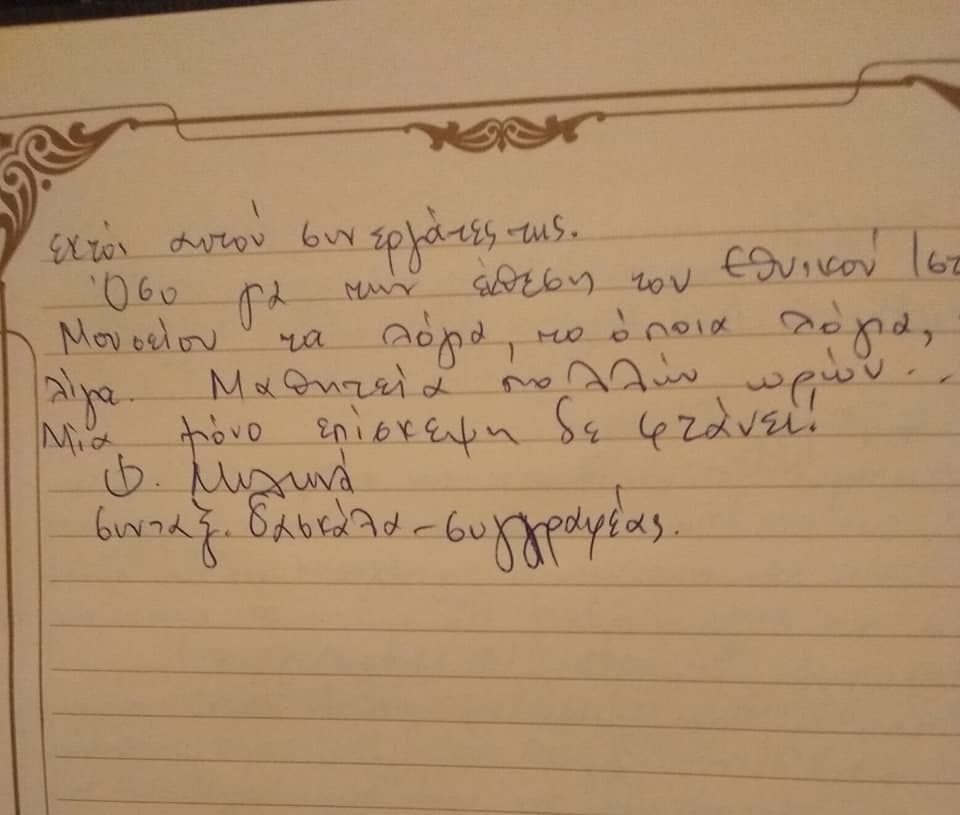 εκτός αυτού συνεργάτες της.
Όσο για την έκθεση του Εθνικού Ιστ
Μουσείου τα λόγια, τα όποια λόγια,
λίγα. Μαθητεία πολλών ωρών...
Μία μόνο επίσκεψη δε φτάνει!
Φ.
συνταξ. δασκάλα - συγγραφέας.